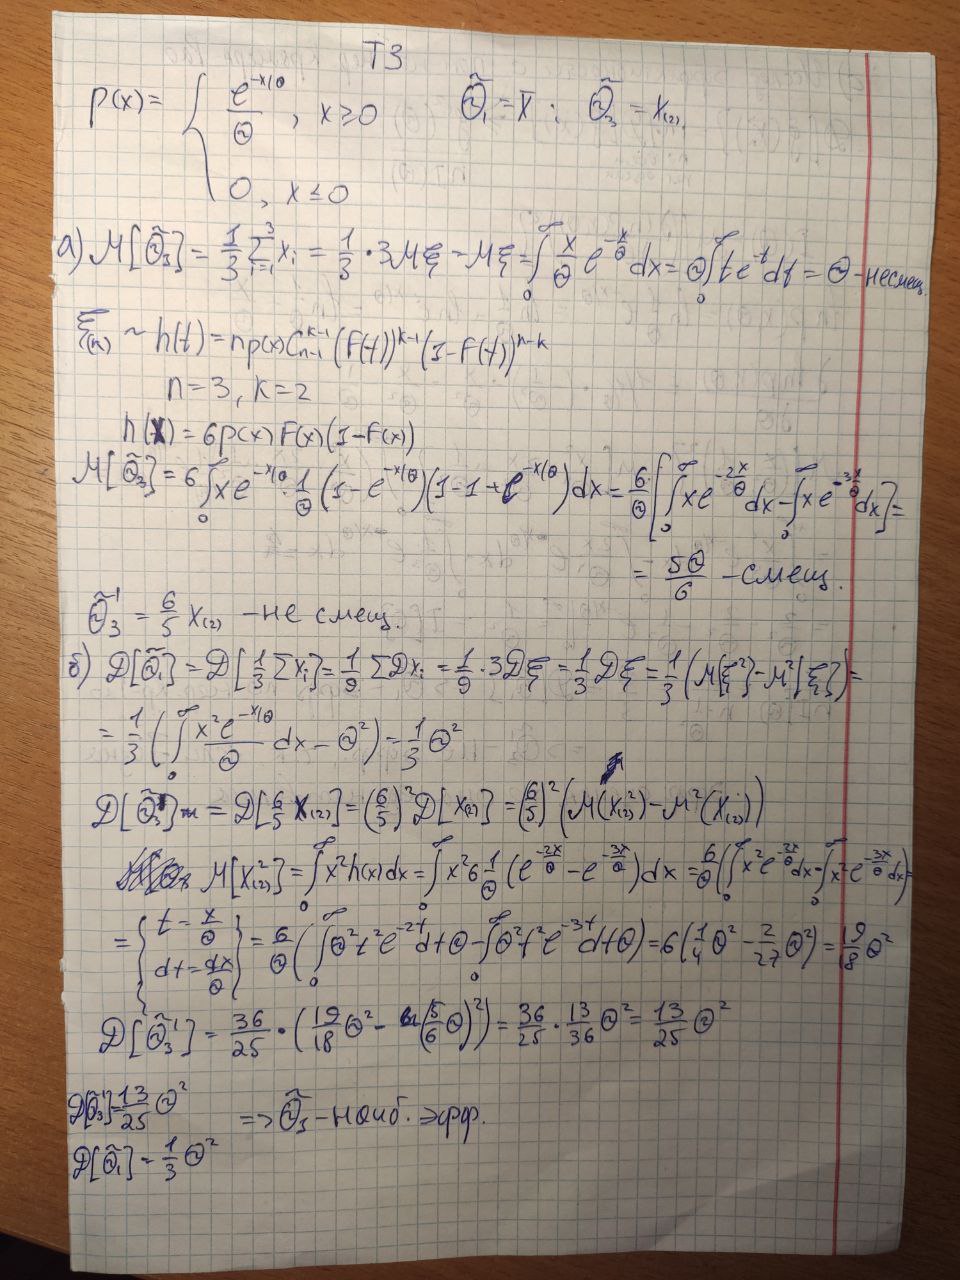 T3
p(x) = { e^{-x/θ}/θ, x ≥ 0    θ̃₁ = x̄ ; θ̃₃ = x₍₂₎.
0, x ≤ 0
а) M[θ̃₃] = 1/3 Σ_{i=1}^{3} xᵢ = 1/3 · 3Mξ = Mξ = ∫₀^∞ x/θ e^{-x/θ} dx = θ∫₀^∞ t e^{-t} dt = θ - несмещ.
ξ₍ₖ₎ ~ h(t) = n p(x) C_{n-1}^{k-1} (F(t))^{k-1} (1-F(t))^{n-k}
n = 3, k = 2
h(x) = 6p(x) F(x) (1-F(x))
M[θ̃₃] = 6∫₀^∞ x e^{-x/θ} · 1/θ (1 - e^{-x/θ})(1 - 1 + e^{-x/θ}) dx = 6/θ [∫₀^∞ x e^{-2x/θ} dx - ∫₀^∞ x e^{-3x/θ} dx] =
= 5θ/6 - смещ.
θ̃₃¹ = 6/5 x₍₂₎ - не смещ.
б) D[θ̃₁] = D[1/3 Σxᵢ] = 1/9 ΣDxᵢ = 1/9 · 3Dξ = 1/3 Dξ = 1/3 (M[ξ²] - M²[ξ]) =
= 1/3 (∫₀^∞ x² e^{-x/θ}/θ dx - θ²) = 1/3 θ²
D[θ̃₃¹] = D[6/5 x₍₂₎] = (6/5)² D[x₍₂₎] = (6/5)² (M(x₍₂₎²) - M²(x₍₂₎))
M[x₍₂₎²] = ∫₀^∞ x² h(x) dx = ∫₀^∞ x² 6 1/θ (e^{-2x/θ} - e^{-3x/θ}) dx = 6/θ (∫₀^∞ x² e^{-2x/θ} dx - ∫₀^∞ x² e^{-3x/θ} dx) =
= { t = x/θ, dt = dx/θ } = 6/θ (∫₀^∞ θ² t² e^{-2t} dt θ - ∫₀^∞ θ² t² e^{-3t} dt θ) = 6(1/4 θ² - 2/27 θ²) = 19/18 θ²
D[θ̃₃¹] = 36/25 · (19/18 θ² - (5/6 θ)²) = 36/25 · 13/36 θ² = 13/25 θ²
D[θ̃₃¹] = 13/25 θ²
=> θ̃₁ - наиб. эфф.
D[θ̃₁] = 1/3 θ²